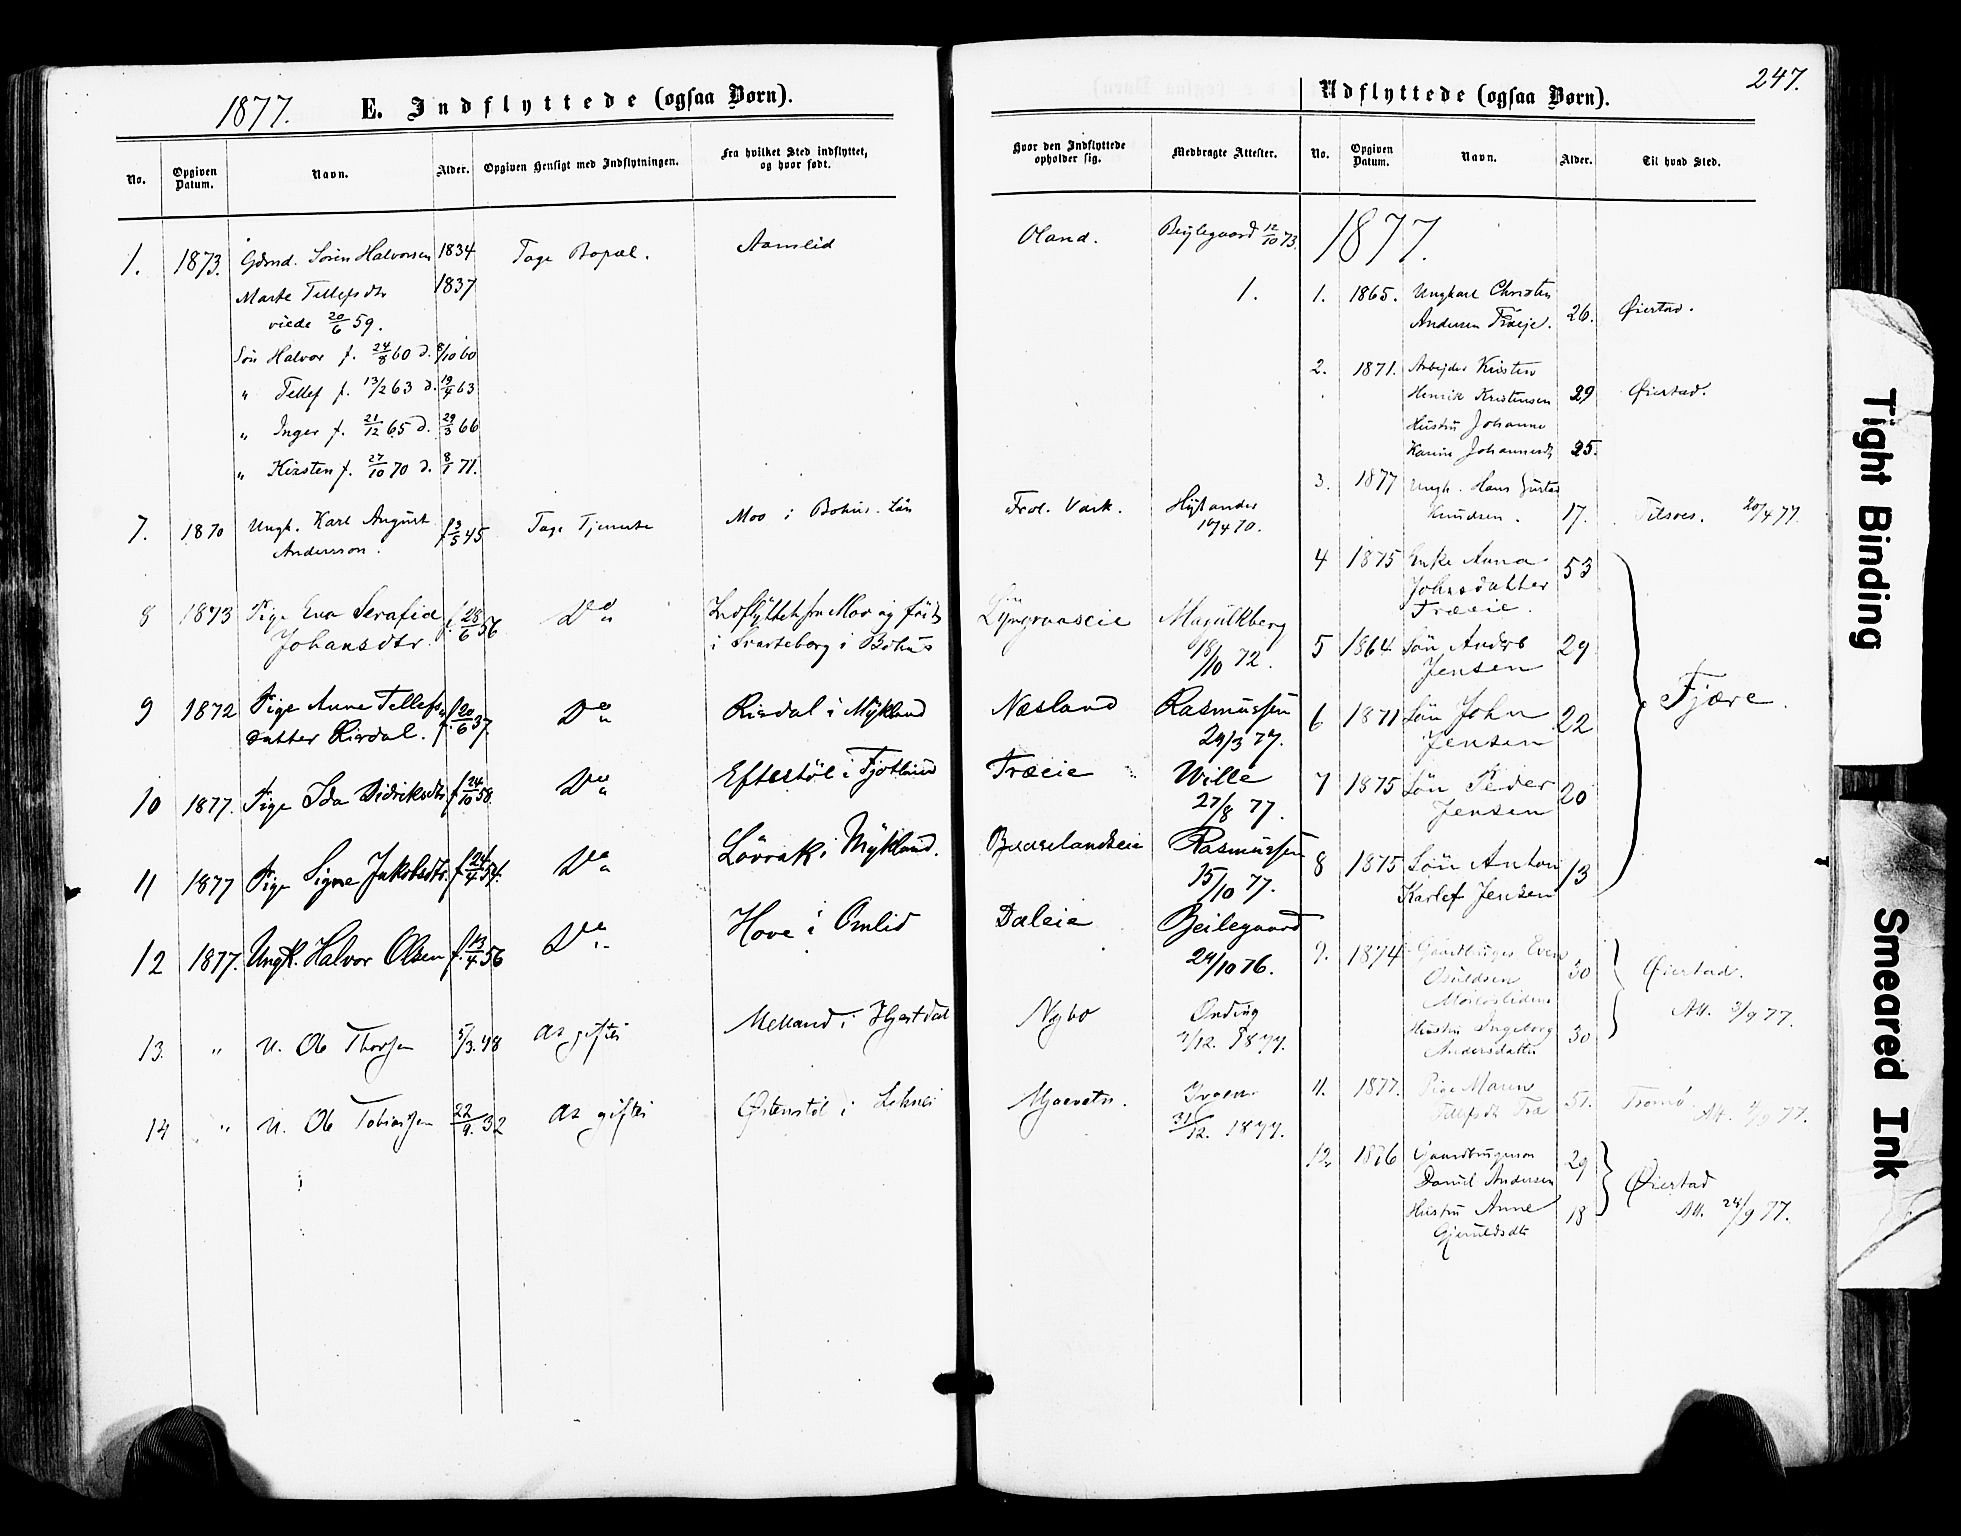 1877. E. Indflyttede (ogsaa Børn).
No. Opgiven Datum. Navn. Alder. Opgiven Hensigt med Indflytningen. Fra hvilket Sted indflyttet, og hvor født.
1. 1873. Gdmd. Søren Halvorsen 1834 Tage Bopæl. Aamlid
Marte Tellefsdtr 1837
viede 20/6 59.
Søn Halvor f. 24/8 60 d. 8/10 60
" Tellef f. 13/2 63 d. 19/4 63
" Inger f. 21/12 65 d. 29/3 66
" Kirsten f. 27/10 70 d. 8/1 71.
7. 1870 Ungk. Karl August f 3/5 45 Tage Tjeneste Moo i Bohus. Län
Andersson.
8 1873 Pige Eva Serafia f. 28/6 56 Do Indflyttet fra Moo og født
Johansdtr. i Svarteborg i Bohus
9 1872 Pige Anne Tellefs f. 20/6 37. Do Risdal i Mykland
datter Risdal.
10 1877. Pige Ida Didriksdtr f. 24/10 58. Do Eftestøl i Fjotland
11 1877 Pige Signe Jakobsdtr. f. 24/4 54. Do Løvrak i Mykland.
12 1877. Ungk. Halvor Olsen f. 13/4 56 Do Hove i Omlid
13. " U. Ole Thorsen 5/3. 48 at giftes Melland i Hjertdal
14 " U. Ole Tobiassen 22/9. 32 at giftes Østenstøl i
247.
Udflyttede (ogsaa Børn).
Hvor den Indflyttede opholder sig. Medbragte Attester. No. Opgiven Datum. Navn. Alder. Til hvad Sted.
Oland. Beylegaard 12/10 73.
1877.
1. 1. 1865. Ungkarl Christen
Andersen Træeje. 26. Øiestad.
2. 1871. Arbejder Kristen
Henrik Kristensen 29 Øiestad.
Hustru Johanne
Karine Johannesdtr 25.
3. 1877 Ungk. Hans Gustav
Knudsen. 17. 20/4 77.
Frol. Værk. 10/4 70.
4 1875 Enke Anna 53
Johnsdatter
Træeie.
Lyngraaseie 18/10 72.
5 1864 Søn Anders 29
Jensen
Fjære.
Næsland Rasmussen
24/3 77.
6 1871 Søn John 22
Jensen
Træeie Wille
27/8 77.
7 1875 Søn Peder 20
Jensen
Rasmussen
15/10 77.
8 1875 Søn Anton 13
Karlef Jensen
Daleie Beilegaard
24/10 76.
9. 1874 Gaardbruger Even 30 Øiestad.
Osuldsen
Att. 3/9 77.
Hustru Ingeborg 30
Andersdatter
Nybo
7/12. 1877.
11. 1877. Pige Maren 51. Tromø.
Tellefsdtr Træ
31/12. 1877.
12. 1876 Gaardbrugeren 29 Øiestad
Daniel Andersen Att. 24/9 77.
Hustru Anne 18
Gjeruldsdtr
Tight Binding
Smeared Ink